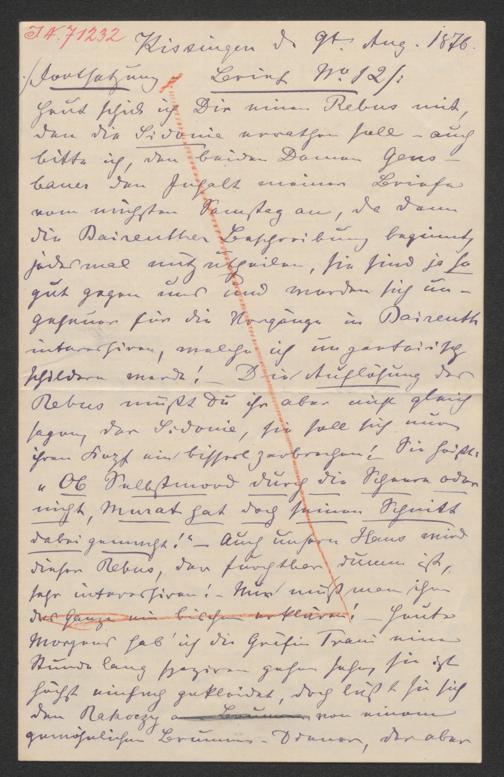 I.N. 71232
Kissingen d. 9t. Aug. 1876.
/: Fortsetzung Brief No. 12/:
Heut schick ich Dir einen Rebus mit,
den die Sidonie errathen soll – auch
bitte ich, den beiden Damen Gens-
bauer den Inhalt meiner Briefe
vom nächsten Samstag an, da dann
die Baireuther Beschreibung beginnt,
jedesmal mitzutheilen, sie sind ja so
gut gegen uns und werden sich un-
geheuer für die Vorgänge in Baireuth
interessiren, welche ich unparteiisch
schildern werde! – Die Auflösung des
Rebus mußt Du ihr aber nicht gleich
sagen, der Sidonie, sie soll sich nur
ihren Kopf ein bisserl zerbrechen! Sie heißt:
"Ob Selbstmord durch die Scheere oder
nicht, Murat hat doch seinen Schnitt
dabei gemacht!" – Auch unsern Hans wird
dieser Rebus, der furchtbar dumm ist,
sehr interessiren! – Nur muß man ihm
das Ganze ein bischen erklären! – Heute
Morgens hab' ich die Gräfin Trani eine
Stunde lang spaziren gehen sehen, sie ist
höchst einfach gekleidet, doch läßt sie sich
den Rakoczy von einem
gewöhnlichen Brunnen-Diener, der aber